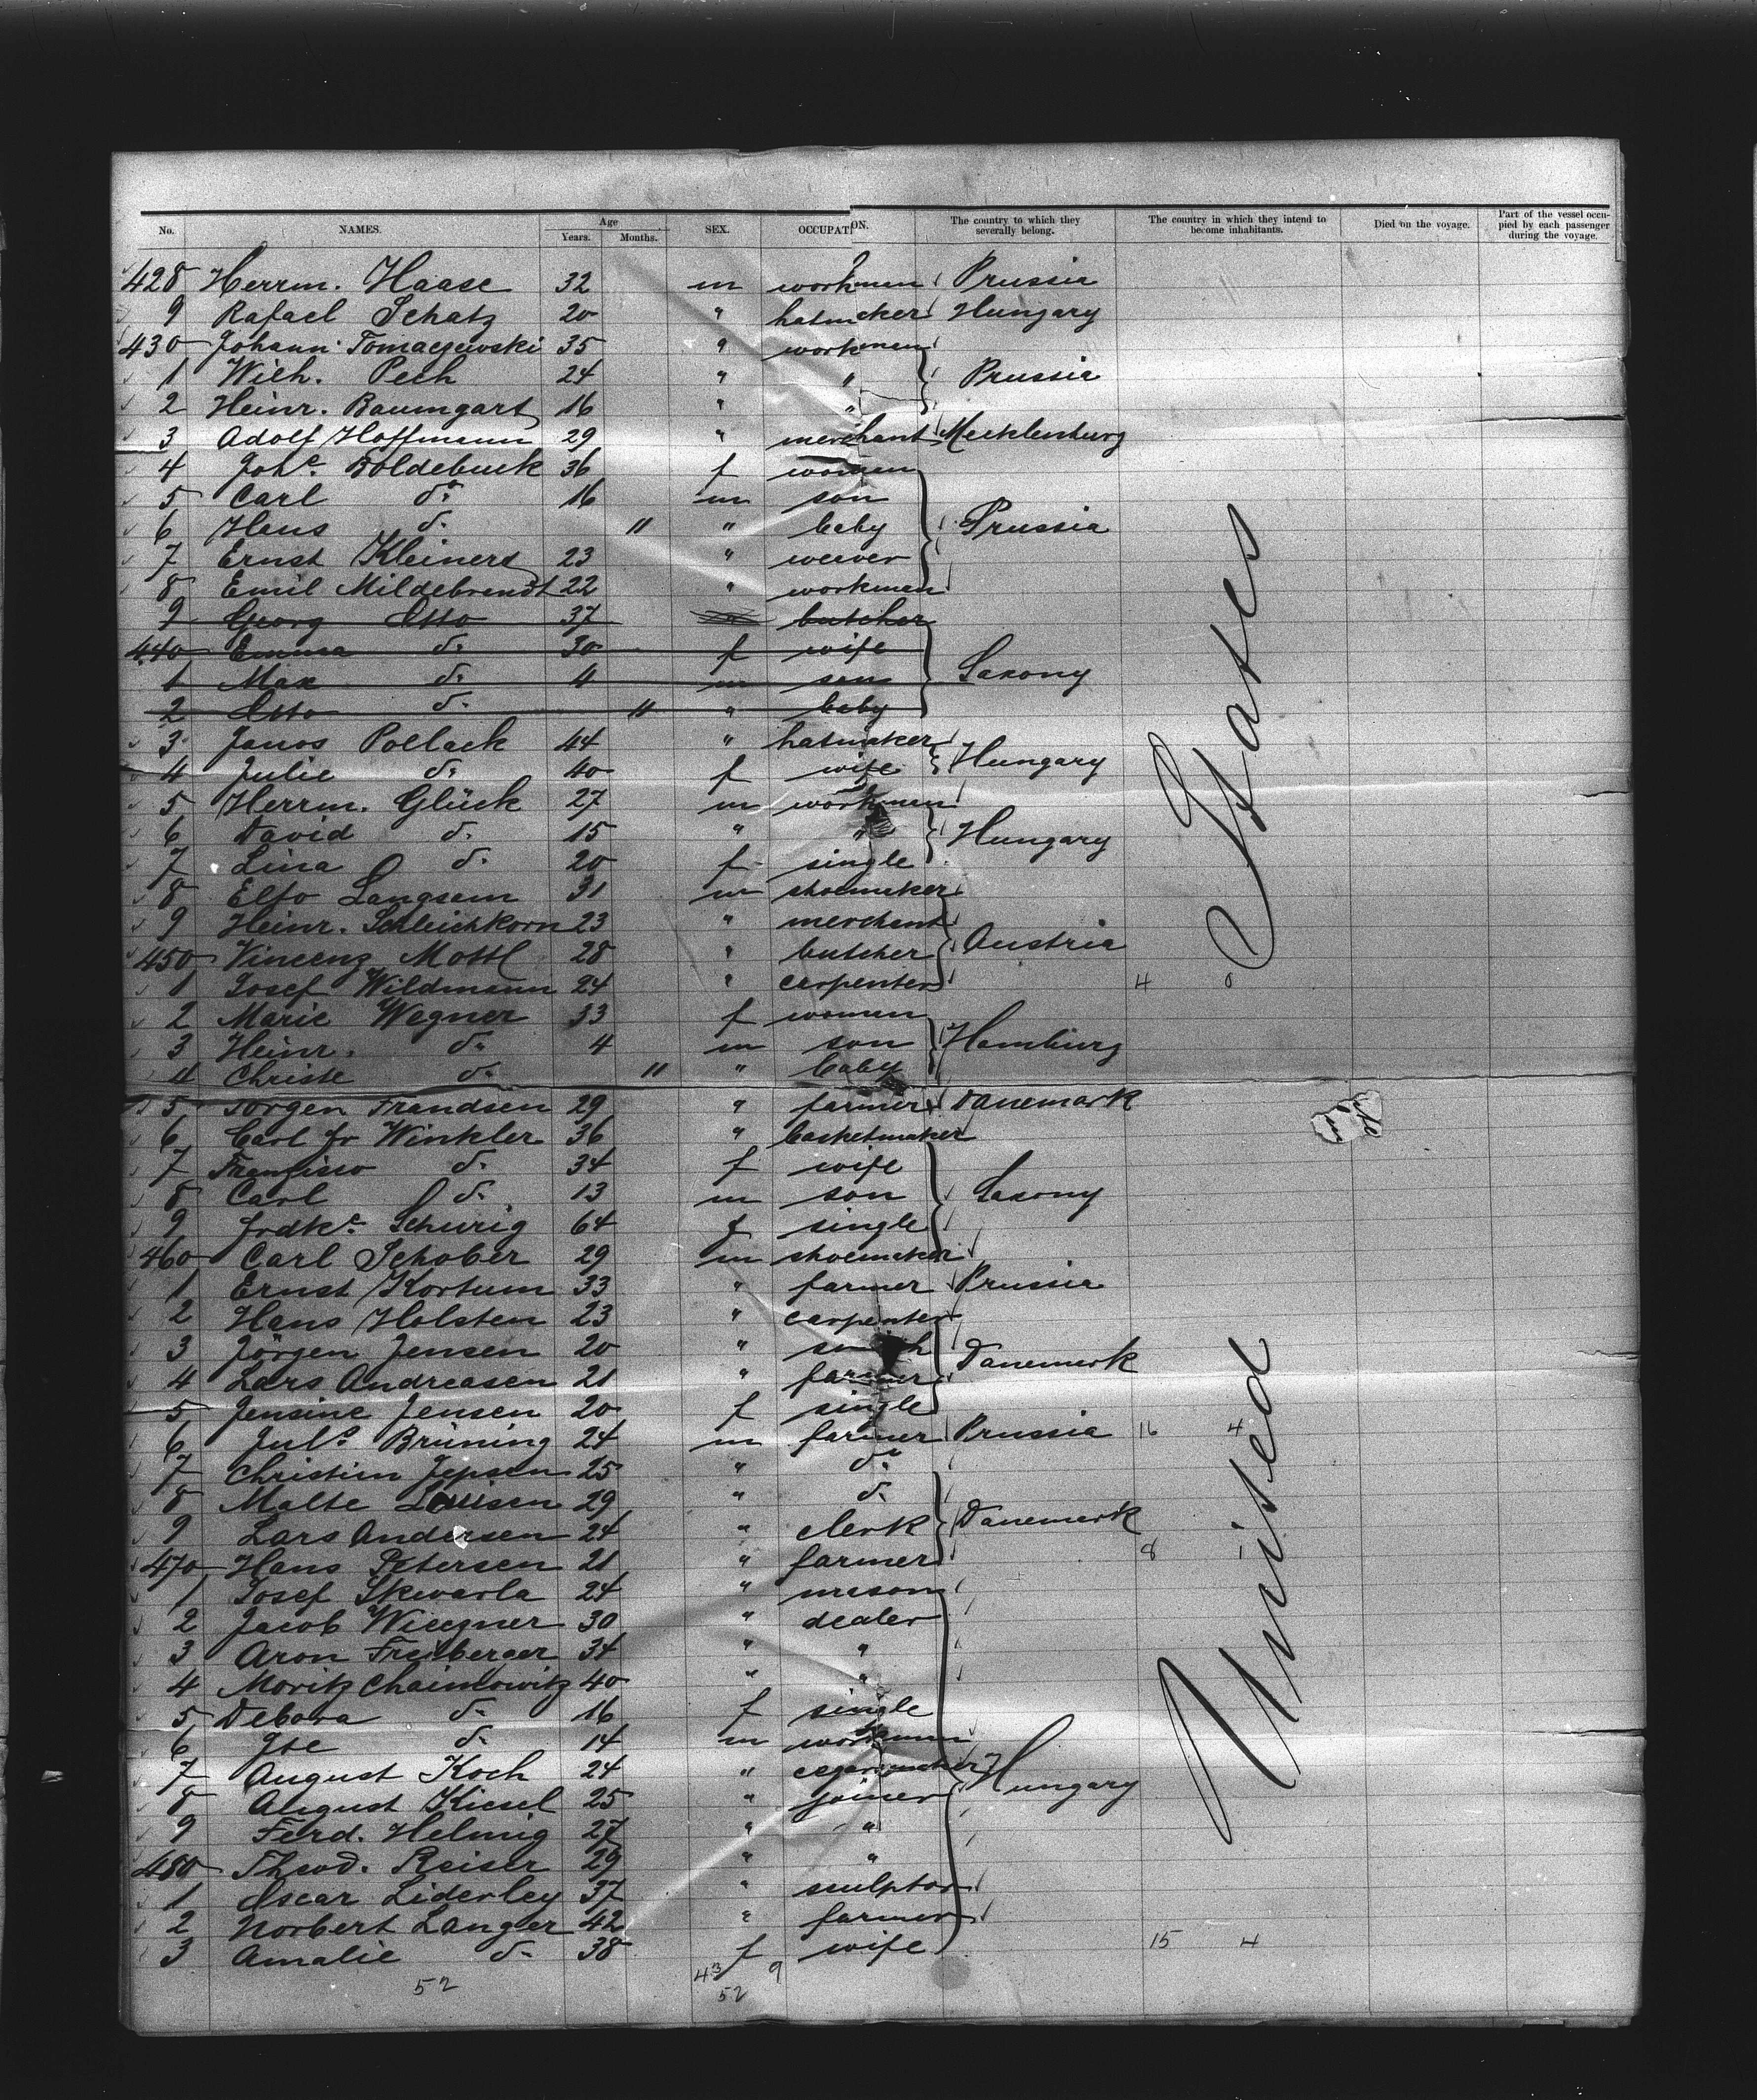 No. NAMES. Age Years. Months. SEX. OCCUPATION. The country to which they severally belong. The country in which they intend to become inhabitants. Died on the voyage. Part of the vessel occupied by each passenger during the voyage.
428 Herrm. Haase 32 m workmen Prussia
9 Rafael Schatz 20 " hatmaker Hungary
430 Johann Tomaczewski 35 " workmen
1 Wilh. Pech 24 " " Prussia
2 Heinr. Baumgart 16 " "
3 Adolf Hoffmann 29 " merchant Mecklenburg
4 Joh.e Boldebuck 36 f women
5 Carl do. 16 m son
6 Hans d. 11 " baby Prussia
7 Ernst Kleinert 23 " weaver
8 Emil Mildebrandt 22 " workmen
9 Georg Otto 37 butcher
440 Emma d. 30 f wife
1 Max d. 4 m son Saxony
2 Otto d. 11 " baby
3 Janos Pollack 44 " hatmaker
4 Julie d. 40 f wife Hungary
5 Herrm. Glück 27 m workmen
6 David d. 15 " " Hungary
7 Lina d. 20 f single
8 Elfo Langsam 31 m shoemaker
9 Heinr. Schleichkorn 23 " merchant
450 Vincenz Mottl 28 " butcher Austria
1 Josef Wildmann 24 " carpenter 4 0
2 Marie Wagner 33 f women
3 Heinr. d. 4 m son Hamburg
4 Christe d. 11 " baby
5 Jörgen Frandsen 29 " farmer Danemark
6 Carl Fr Winkler 36 " basketmaker
7 Franzisco d. 34 f wife
8 Carl d. 13 m son Saxony
9 Frdke. Schurig 64 f single
460 Carl Schober 29 m shoemaker
1 Ernst Kortum 33 " farmer Prussia
2 Hans Holsten 23 " carpenter
3 Jörgen Jensen 20 " smith Danemark
4 Lars Andreasen 21 " farmer
5 Jensine Jensen 20 f single
6 Juls. Brüning 24 m farmer Prussia 16 4
7 Christian Jepsen 25 " do.
8 Malte 29 " d.
9 Lars Andersen 24 " clerk Danemark
470 Hans Petersen 21 " farmer 8 1
1 Josef Skwarla 24 " mason
2 Jacob 30 " dealer
3 Aron Freiberger 34 " "
4 Moritz Chaimowitz 40 " "
5 Debora d. 16 f single
6 d. 14 m workmen
7 August Koch 24 " cegarmaker Hungary
8 August Kiesel 25 " joiner
9 Ferd. Helmig 27 " "
480 Theod. Reiser 29 " "
1 Oscar Liderley 37 " sculptor
2 Norbert Langer 42 " farmer
3 Amalie d. 38 f wife 15 4
52 43 9
52
United States